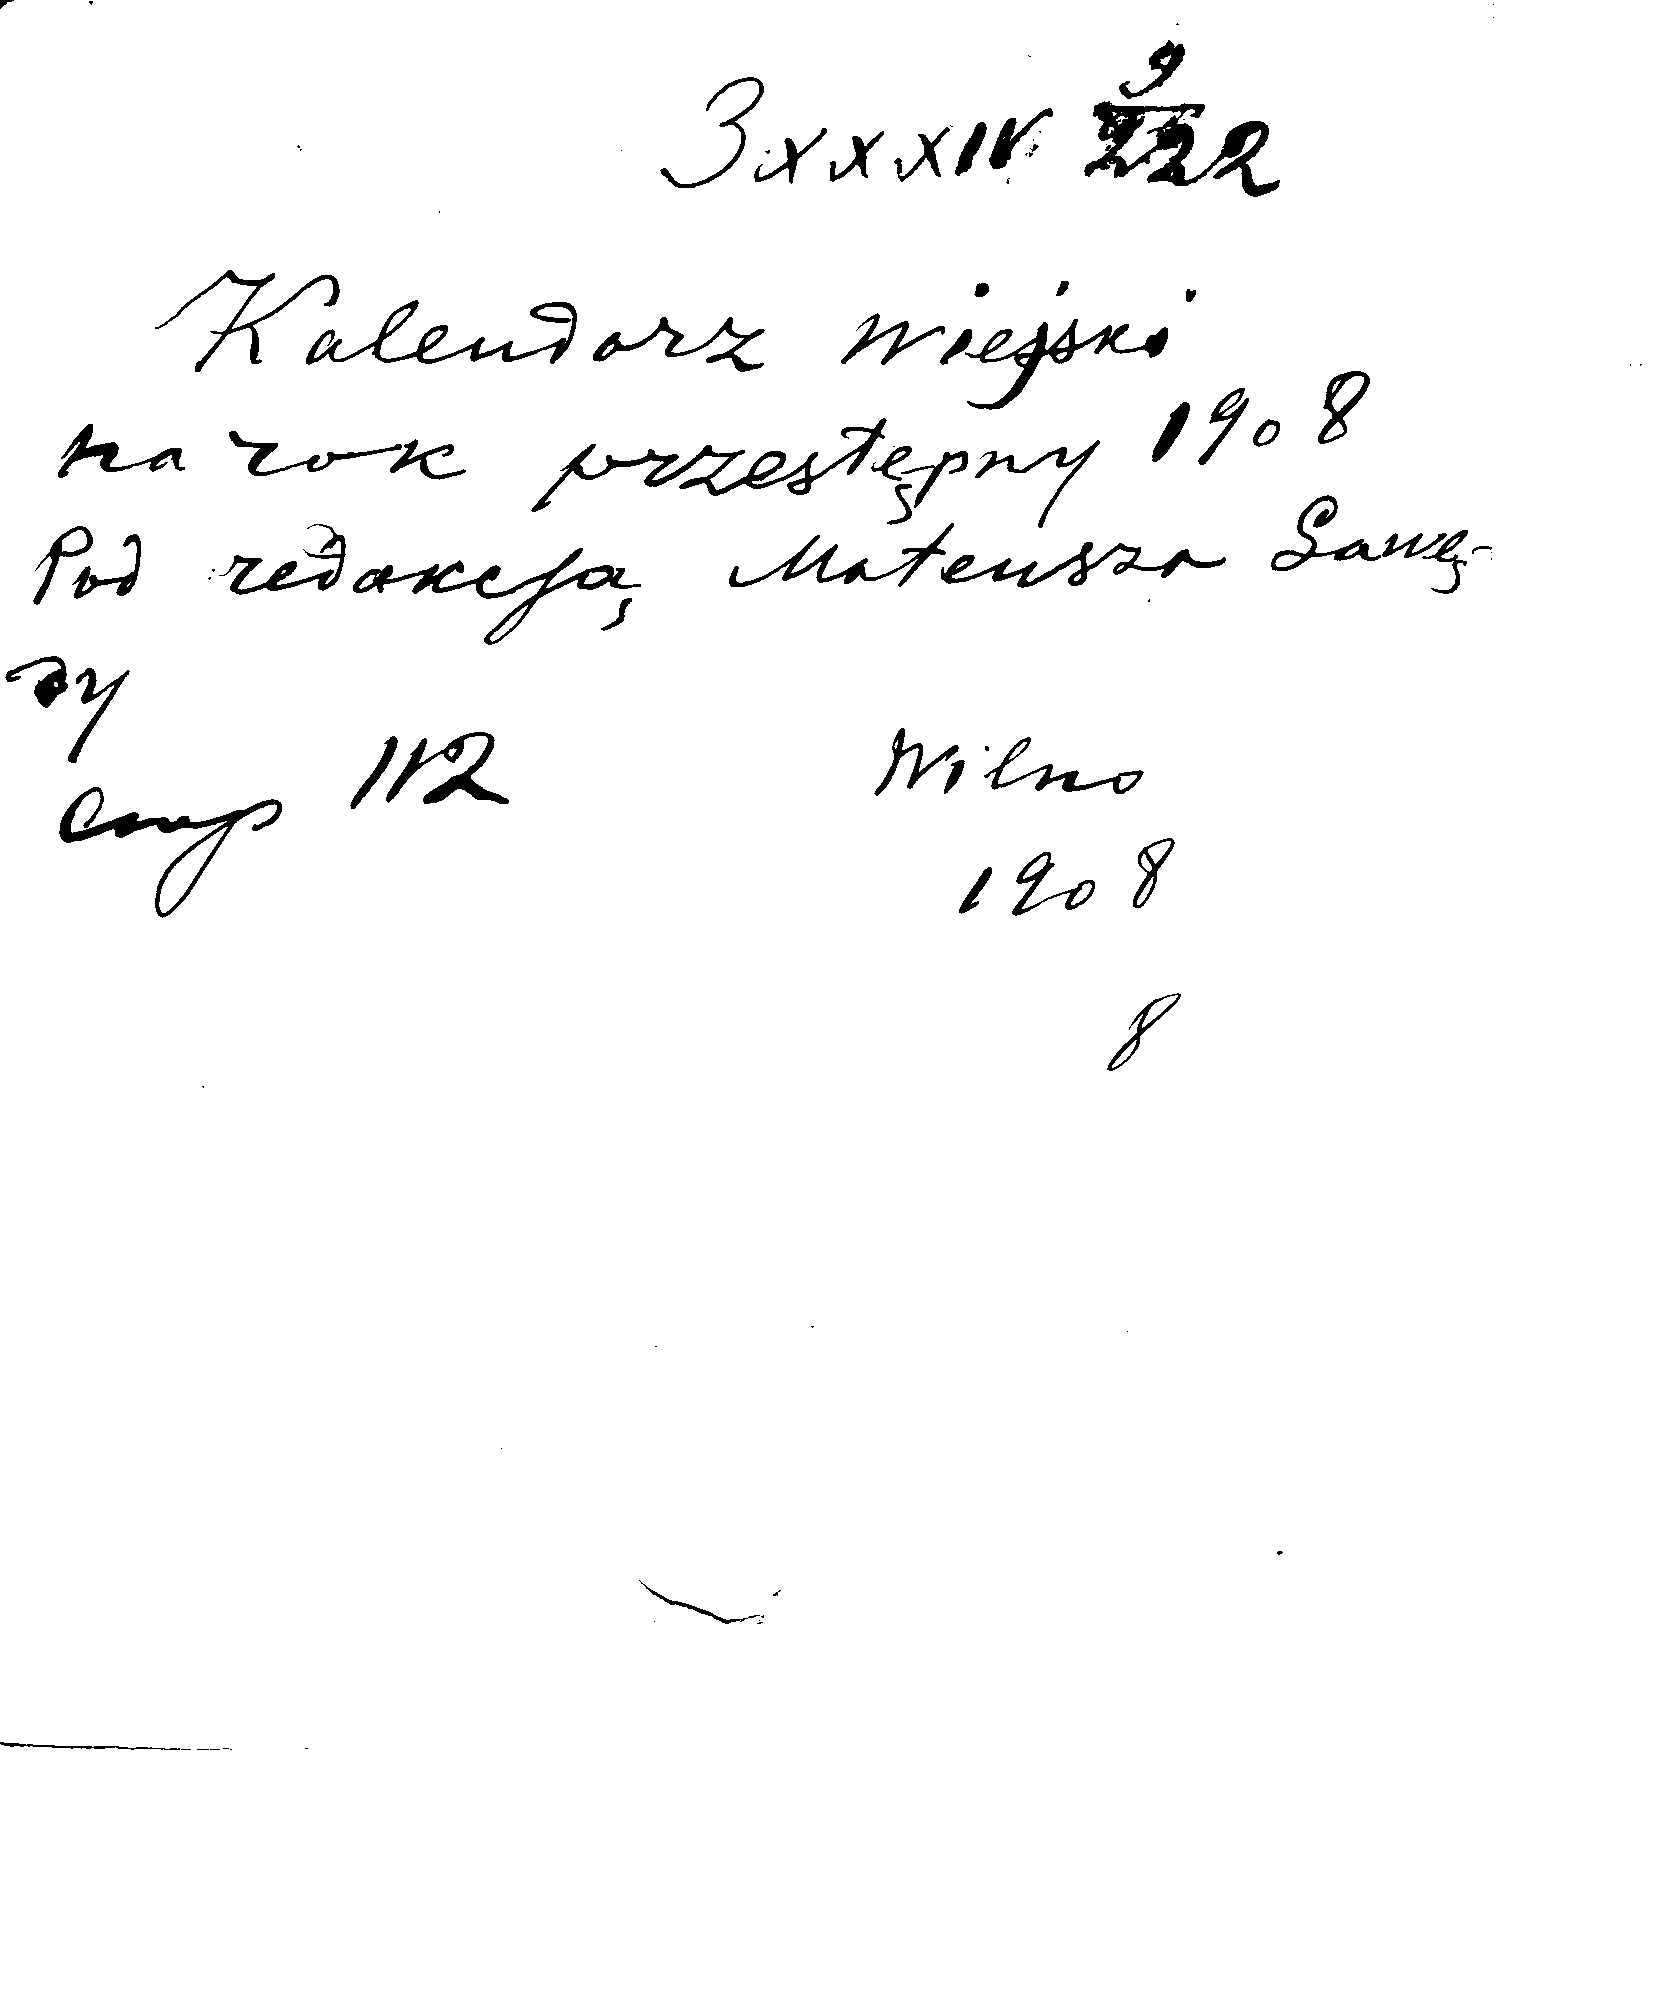 3 XXXIV 9/222
Kalendarz wiejski
na rok przestępny 1908
Pod redakcją Mateusza Gawę-
dy
Стр 112 Wilno
1908
8